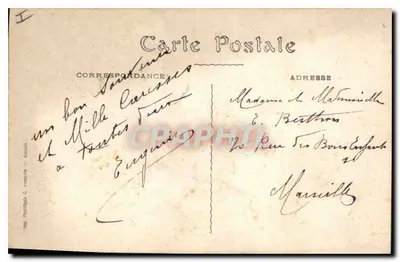 I
Carte Postale
CORRESPONDANCE
ADRESSE
un bon Souvenir
et Mille Caresses
a toutes deux
Eugénie
Madame et Mademoiselle
E. Berthon
70 Rue des Bons Enfants
Marseille
CPARAMA